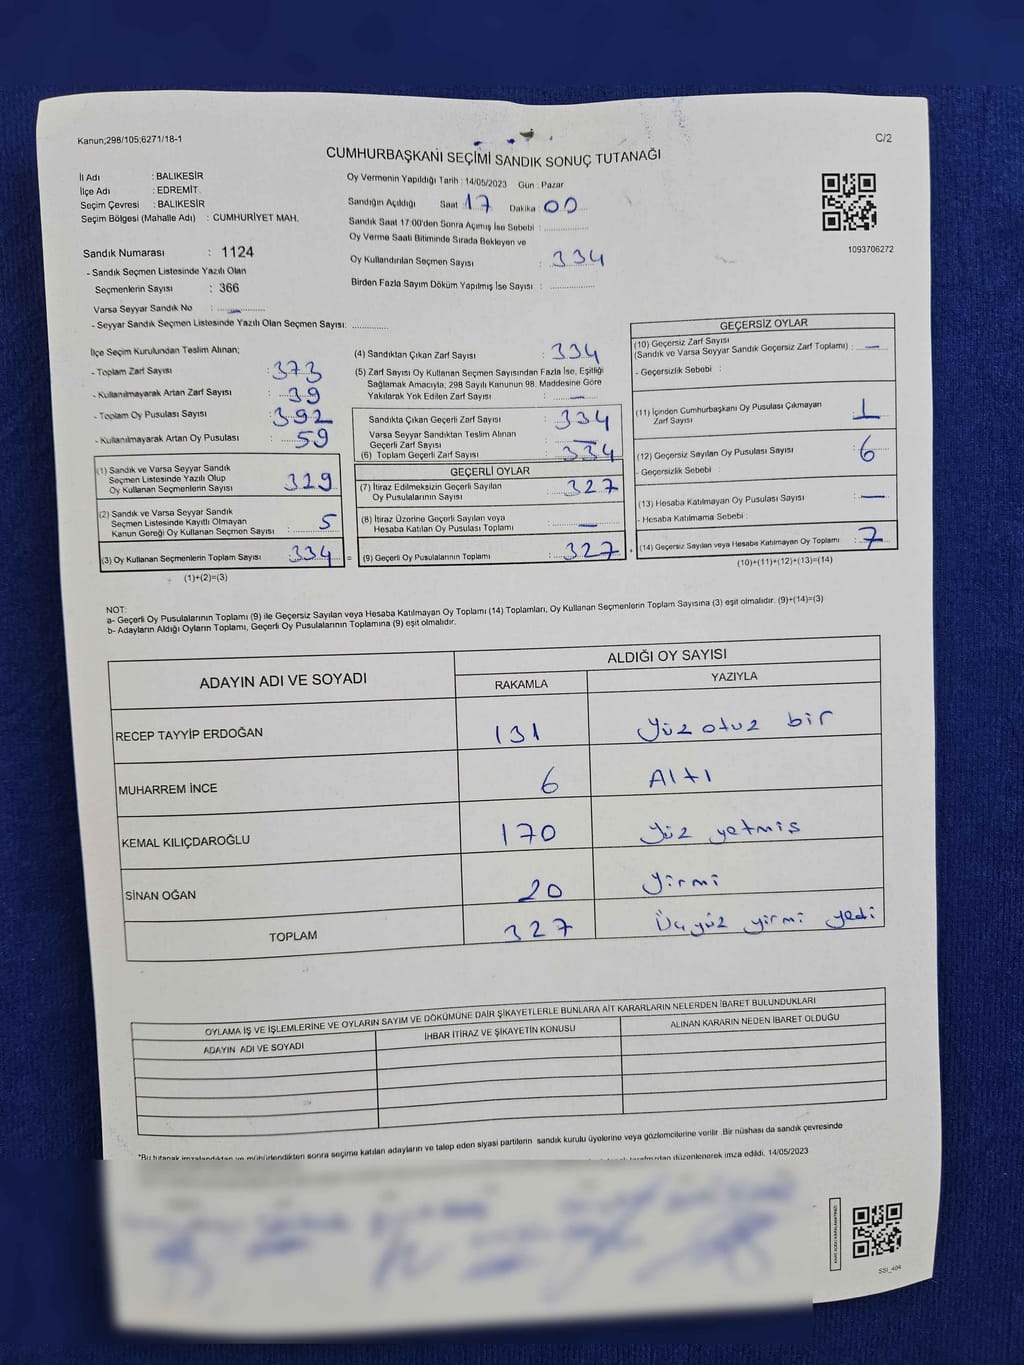 Kanun;298/105;6271/18-1
C/2
CUMHURBAŞKANI SEÇİMİ SANDIK SONUÇ TUTANAĞI
İl Adı : BALIKESİR
İlçe Adı : EDREMİT
Seçim Çevresi : BALIKESİR
Seçim Bölgesi (Mahalle Adı) : CUMHURİYET MAH.
Sandık Numarası : 1124
- Sandık Seçmen Listesinde Yazılı Olan
Seçmenlerin Sayısı : 366
Varsa Seyyar Sandık No :
- Seyyar Sandık Seçmen Listesinde Yazılı Olan Seçmen Sayısı:
Oy Vermenin Yapıldığı Tarih : 14/05/2023 Gün : Pazar
Sandığın Açıldığı Saat 17 Dakika 00
Sandık Saat 17:00'den Sonra Açımış İse Sebebi :
Oy Verme Saati Bitiminde Sırada Bekleyen ve
Oy Kullandırılan Seçmen Sayısı : 334
Birden Fazla Sayım Döküm Yapılmış İse Sayısı :
1093706272
İlçe Seçim Kurulundan Teslim Alınan;
- Toplam Zarf Sayısı : 373
- Kullanılmayarak Artan Zarf Sayısı : 39
- Toplam Oy Pusulası Sayısı : 392
- Kullanılmayarak Artan Oy Pusulası : 59
(1) Sandık ve Varsa Seyyar Sandık
Seçmen Listesinde Yazılı Olup
Oy Kullanan Seçmenlerin Sayısı : 329
(2) Sandık ve Varsa Seyyar Sandık
Seçmen Listesinde Kayıtlı Olmayan
Kanun Gereği Oy Kullanan Seçmen Sayısı : 5
(3) Oy Kullanan Seçmenlerin Toplam Sayısı : 334 =
(1)+(2)=(3)
(4) Sandıktan Çıkan Zarf Sayısı : 334
(5) Zarf Sayısı Oy Kullanan Seçmen Sayısından Fazla İse, Eşitliği
Sağlamak Amacıyla; 298 Sayılı Kanunun 98. Maddesine Göre
Yakılarak Yok Edilen Zarf Sayısı : —
Sandıkta Çıkan Geçerli Zarf Sayısı : 334
Varsa Seyyar Sandıktan Teslim Alınan
Geçerli Zarf Sayısı : —
(6) Toplam Geçerli Zarf Sayısı : 334
GEÇERLİ OYLAR
(7) İtiraz Edilmeksizin Geçerli Sayılan
Oy Pusulalarının Sayısı : 327
(8) İtiraz Üzerine Geçerli Sayılan veya
Hesaba Katılan Oy Pusulası Toplamı : —
(9) Geçerli Oy Pusulalarının Toplamı : 327 +
GEÇERSİZ OYLAR
(10) Geçersiz Zarf Sayısı
(Sandık ve Varsa Seyyar Sandık Geçersiz Zarf Toplamı) : —
- Geçersizlik Sebebi :
(11) İçinden Cumhurbaşkanı Oy Pusulası Çıkmayan
Zarf Sayısı : 1
(12) Geçersiz Sayılan Oy Pusulası Sayısı : 6
- Geçersizlik Sebebi :
(13) Hesaba Katılmayan Oy Pusulası Sayısı : —
- Hesaba Katılmama Sebebi :
(14) Geçersiz Sayılan veya Hesaba Katılmayan Oy Toplamı : 7
(10)+(11)+(12)+(13)=(14)
NOT:
a- Geçerli Oy Pusulalarının Toplamı (9) ile Geçersiz Sayılan veya Hesaba Katılmayan Oy Toplamı (14) Toplamları, Oy Kullanan Seçmenlerin Toplam Sayısına (3) eşit olmalıdır. (9)+(14)=(3)
b- Adayların Aldığı Oyların Toplamı, Geçerli Oy Pusulalarının Toplamına (9) eşit olmalıdır.
ADAYIN ADI VE SOYADI
ALDIĞI OY SAYISI
RAKAMLA YAZIYLA
RECEP TAYYİP ERDOĞAN 131 Yüz otuz bir
MUHARREM İNCE 6 Altı
KEMAL KILIÇDAROĞLU 170 Yüz yetmiş
SİNAN OĞAN 20 Yirmi
TOPLAM 327 Üçyüz yirmi yedi
OYLAMA İŞ VE İŞLEMLERİNE VE OYLARIN SAYIM VE DÖKÜMÜNE DAİR ŞİKAYETLERLE BUNLARA AİT KARARLARIN NELERDEN İBARET BULUNDUKLARI
ADAYIN ADI VE SOYADI İHBAR İTİRAZ VE ŞİKAYETİN KONUSU ALINAN KARARIN NEDEN İBARET OLDUĞU
*Bu tutanak imzalandıktan ve mühürlendikten sonra seçime katılan adayların ve talep eden siyasi partilerin sandık kurulu üyelerine veya gözlemcilerine verilir .Bir nüshası da sandık çevresinde
düzenlenerek imza edildi. 14/05/2023
SSI_404